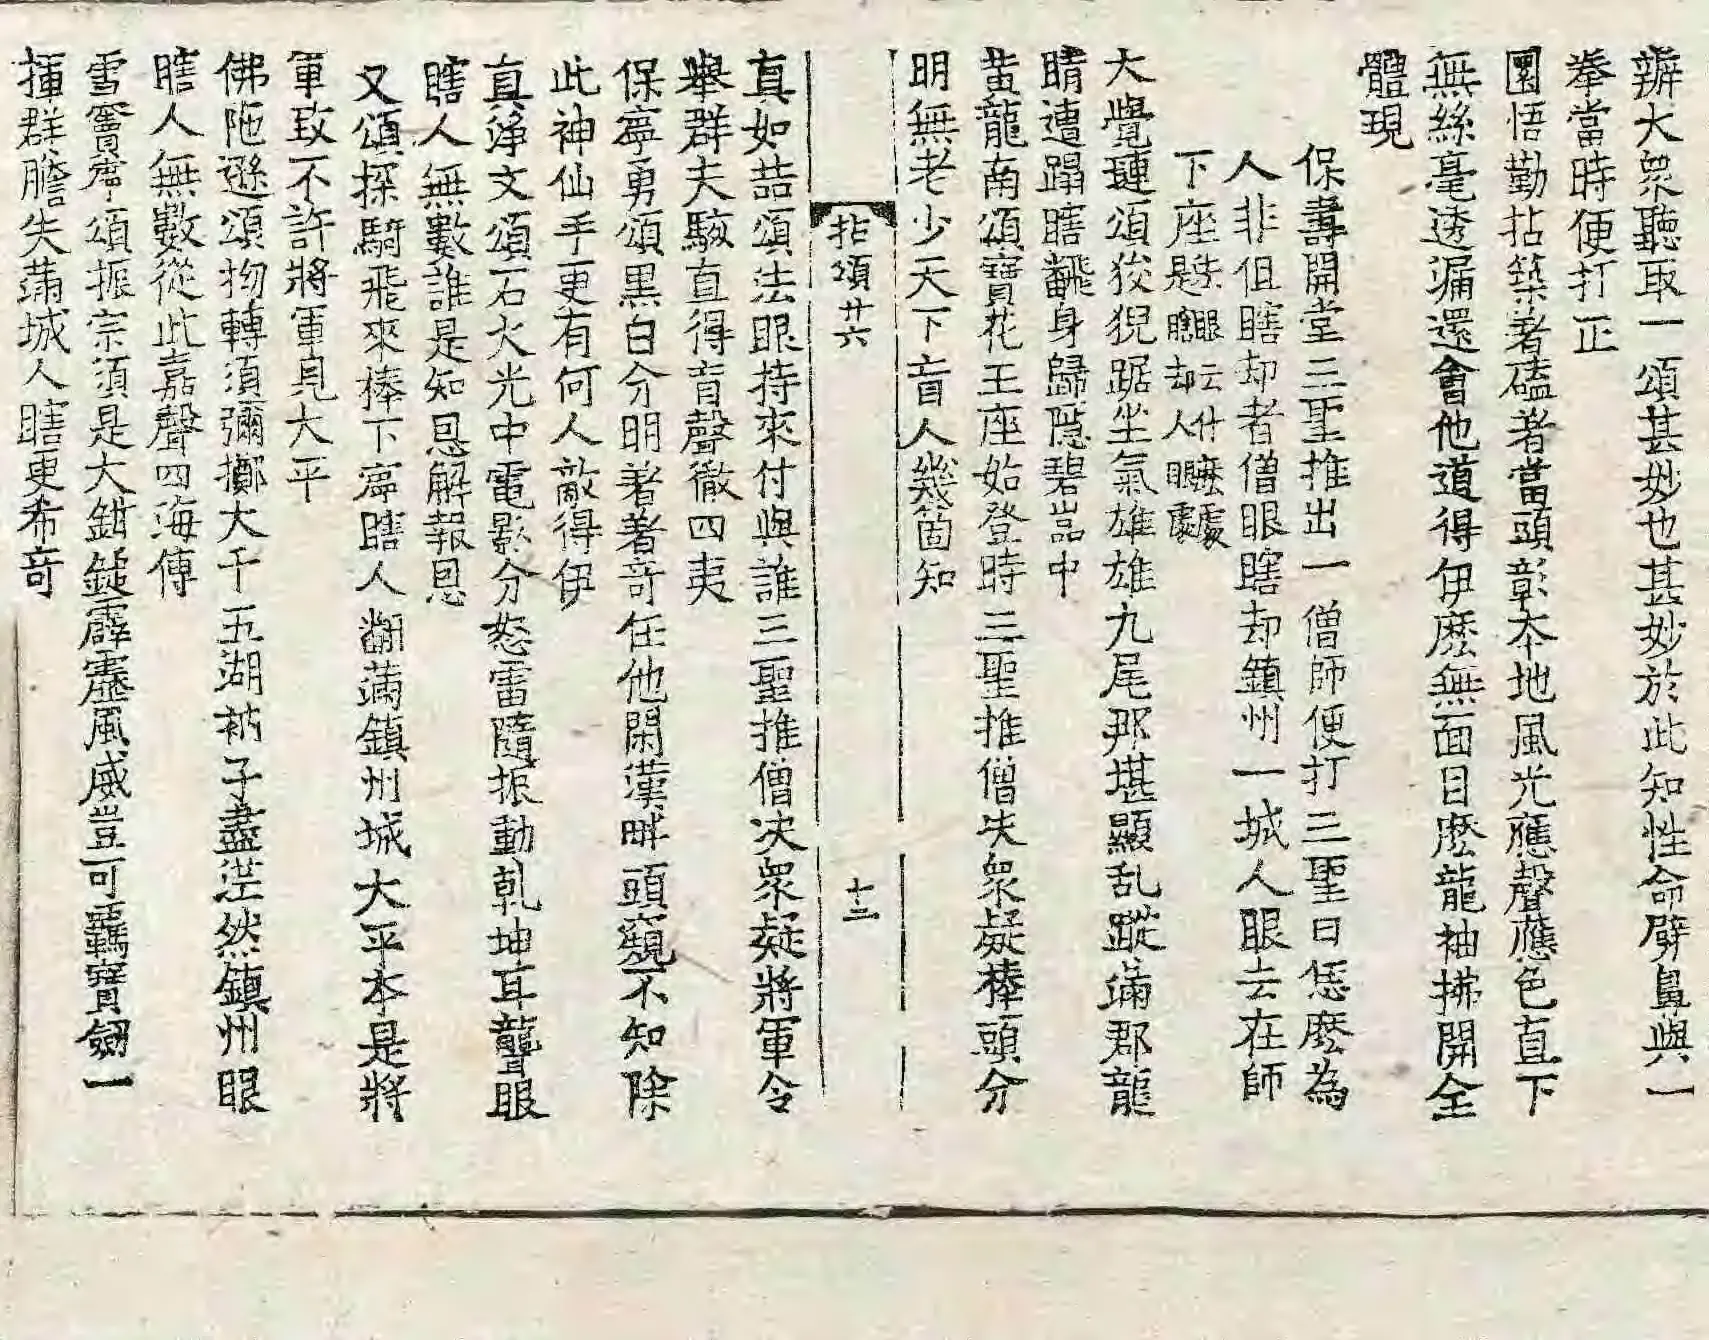 辨大衆聽取一頌甚妙也甚妙於此知性命劈鼻與一
拳當時便打正
圜悟勤拈築著磕著當頭彰本地風光應聲應色直下
無絲毫透漏還會他道得伊麽無面目麽龍袖拂開全
體現
保壽開堂三聖推出一僧師便打三聖曰恁麽為
人非但瞎却者僧眼瞎却鎮州一城人眼去在師
下座法眼云什麽處是瞎却人眼處
大覺璉頌狻猊踞坐氣雄雄九尾那堪顯乱蹤滿郡龍
睛遭蹋瞎飜身歸隱碧嵓中
黄龍南頌寶花王座始登時三聖推僧决衆疑棒頭分
明無老少天下盲人幾箇知
拈頌廿六
十三
真如喆頌法眼持來付與誰三聖推僧决衆疑將軍令
舉群夫駭直得音聲徹四夷
保寧勇頌黒白分明著著竒任他閑漢衅頭窺不知除
此神仙手更有何人敵得伊
真淨文頌石火光中電影分怒雷隨振動乹坤耳聾眼
瞎人無數誰是知恩解報恩
又頌探騎飛來棒下寧瞎人翻滿鎮州城大平本是將
軍致不許將軍見大平
佛陁遜頌物轉須彌擲大千五湖衲子盡茫然鎮州眼
瞎人無數從此嘉聲四海傳
雪竇寧頌振宗須是大鉗鎚霹靂風威豈可羈寶劒一
揮群膽失滿城人瞎更希竒